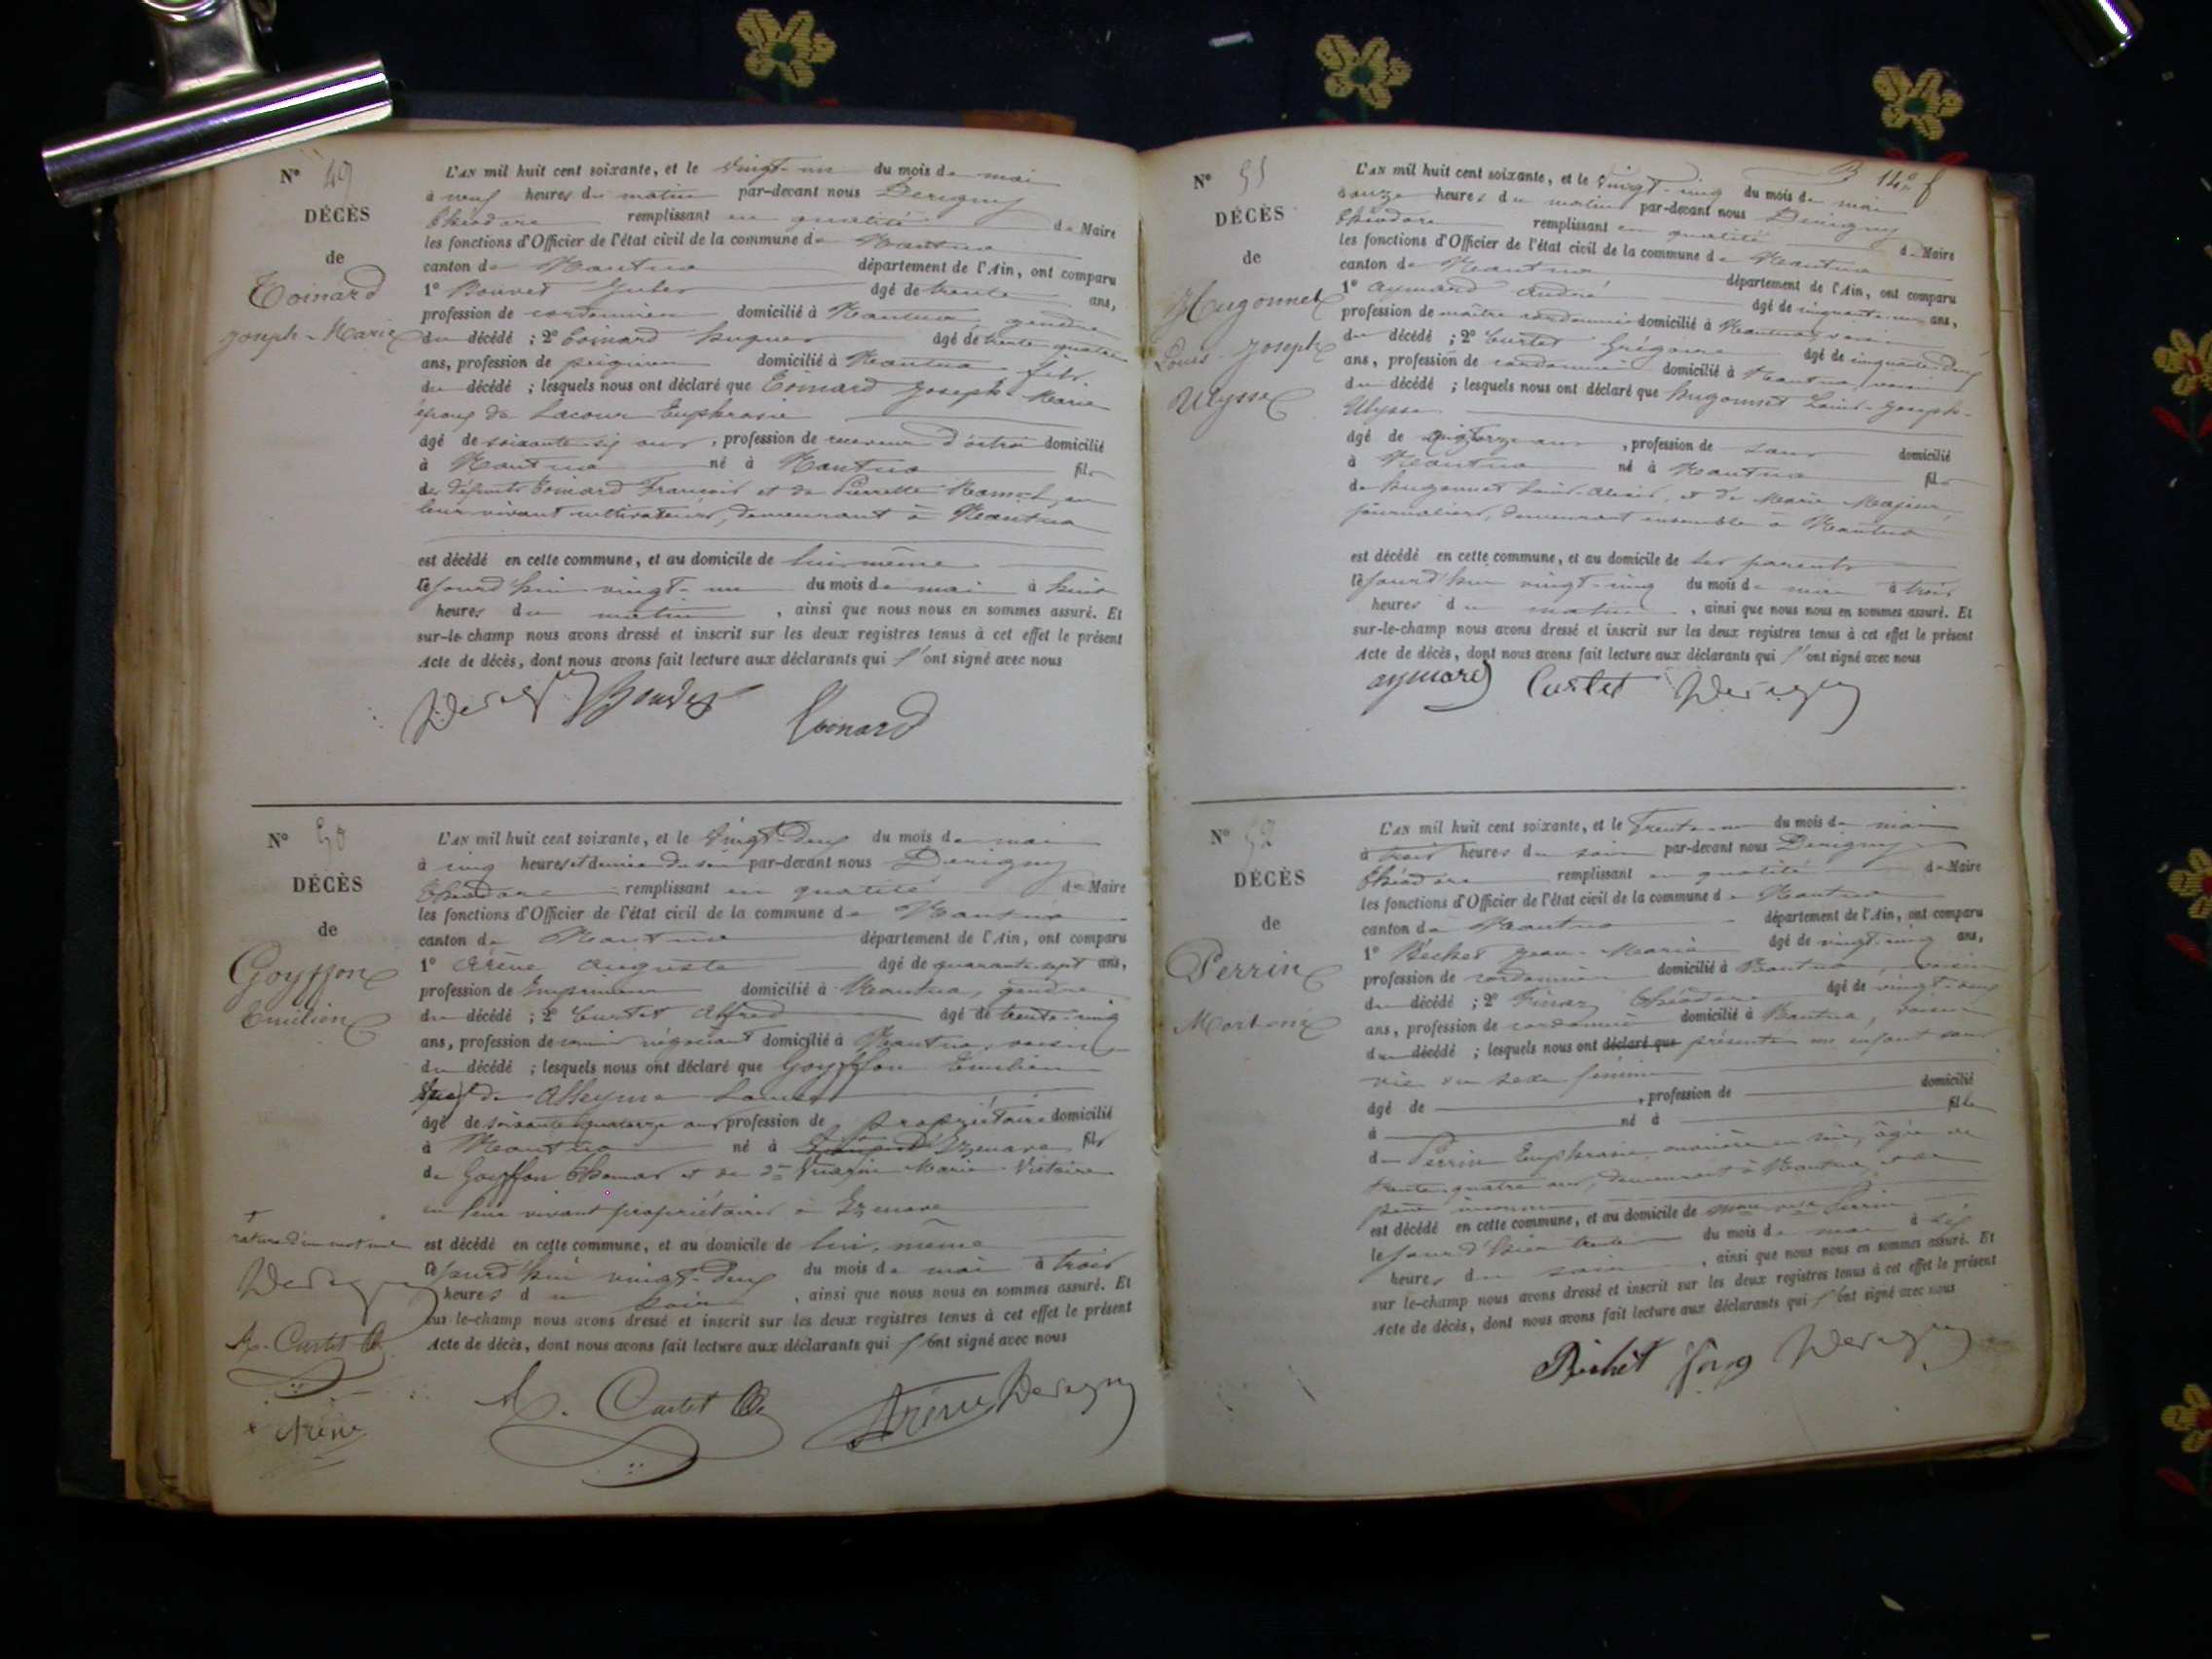 N° 49
DÉCÈS
de
Toinard
Joseph-Marie
L'AN mil huit cent soixante, et le vingt-un du mois de mai
à neuf heures du matin par-devant nous Derigny
Théodore remplissant en qualité de Maire
les fonctions d'Officier de l'état civil de la commune de Nantua
canton de Nantua département de l'Ain, ont comparu
1° Bouvet Jules âgé de trente ans,
profession de cordonnier domicilié à Nantua, gendre
du décédé ; 2° Toinard hugues âgé de trente quatre
ans, profession de domicilié à Nantua fils
du décédé ; lesquels nous ont déclaré que Toinard Joseph-Marie
époux de Lacour Euphrasie
âgé de soixante-six ans, profession de receveur d'octroi domicilié
à Nantua né à Nantua fils
des défunts Toinard François et de Pierrette en
leur vivant cultivateurs, demeurant à Nantua
est décédé en cette commune, et au domicile de lui-même
cejourd'hui vingt-un du mois de mai à huit
heures du matin, ainsi que nous nous en sommes assuré. Et
sur-le-champ nous avons dressé et inscrit sur les deux registres tenus à cet effet le présent
Acte de décès, dont nous avons fait lecture aux déclarants qui l'ont signé avec nous
Derigny Bouvet Toinard
N° 50
DÉCÈS
de
Goyffon
Emilien
L'AN mil huit cent soixante, et le vingt-deux du mois de mai
à cinq heures et demie du soir par-devant nous Derigny
Théodore remplissant en qualité de Maire
les fonctions d'Officier de l'état civil de la commune de Nantua
canton de Nantua département de l'Ain, ont comparu
1° Arène Auguste âgé de quarante-sept ans,
profession de Imprimeur domicilié à Nantua, gendre
du décédé ; 2° Curtet Alfred âgé de trente-cinq
ans, profession de négociant domicilié à Nantua, voisin
du décédé ; lesquels nous ont déclaré que Goyffon Emilien
veuf de Alleyme
âgé de soixante quatorze ans, profession de propriétaire domicilié
à Nantua né à Izenave fils
de Goyffon Thomas et de Marie-Victoire
en leur vivant propriétaires à Izenave
est décédé en cette commune, et au domicile de lui-même
cejourd'hui vingt-deux du mois de mai à trois
heures du soir, ainsi que nous nous en sommes assuré. Et
sur-le-champ nous avons dressé et inscrit sur les deux registres tenus à cet effet le présent
Acte de décès, dont nous avons fait lecture aux déclarants qui l'ont signé avec nous
rature d'un mot nul
Derigny
A. Curtet
Arène
A. Curtet Arène Derigny
14
N° 51
DÉCÈS
de
Hugonnet
Louis-Joseph
Ulysse
L'AN mil huit cent soixante, et le vingt-cinq du mois de mai
à onze heures du matin par-devant nous Derigny
Théodore remplissant en qualité de Maire
les fonctions d'Officier de l'état civil de la commune de Nantua
canton de Nantua département de l'Ain, ont comparu
1° Aymard André âgé de cinquante-un ans,
profession de maître cordonnier domicilié à Nantua, voisin
du décédé ; 2° Curtet Grégoire âgé de cinquante-deux
ans, profession de cordonnier domicilié à Nantua, voisin
du décédé ; lesquels nous ont déclaré que hugonnet Louis-Joseph-
Ulysse
âgé de ans, profession de sans domicilié
à Nantua né à Nantua fils
de hugonnet Louis-Alexis, et de Marie
journaliers, demeurant ensemble à Nantua
est décédé en cette commune, et au domicile de ses parents
cejourd'hui vingt-cinq du mois de mai à trois
heures du matin, ainsi que nous nous en sommes assuré. Et
sur-le-champ nous avons dressé et inscrit sur les deux registres tenus à cet effet le présent
Acte de décès, dont nous avons fait lecture aux déclarants qui l'ont signé avec nous
aymard Curtet Derigny
N° 52
DÉCÈS
de
Perrin
Mort-né
L'AN mil huit cent soixante, et le Trente-un du mois de mai
à trois heures du soir par-devant nous Derigny
Théodore remplissant en qualité de Maire
les fonctions d'Officier de l'état civil de la commune de Nantua
canton de Nantua département de l'Ain, ont comparu
1° Béchet Jean-Marie âgé de vingt-cinq ans,
profession de cordonnier domicilié à Nantua, voisin
du décédé ; 2° Théodore âgé de vingt-neuf
ans, profession de cordonnier domicilié à Nantua, voisin
du décédé ; lesquels nous ont déclaré que présenté un enfant sans
vie du sexe féminin
âgé de , profession de domicilié
à né à fille
de Perrin Euphrasie, ouvrière en soie, âgée de
trente-quatre ans, demeurant à Nantua, et de
père inconnu
est décédé en cette commune, et au domicile de Perrin
le jour d'hier trente du mois de mai à six
heures du soir, ainsi que nous nous en sommes assuré. Et
sur le-champ nous avons dressé et inscrit sur les deux registres tenus à cet effet le présent
Acte de décès, dont nous avons fait lecture aux déclarants qui l'ont signé avec nous
Béchet Derigny